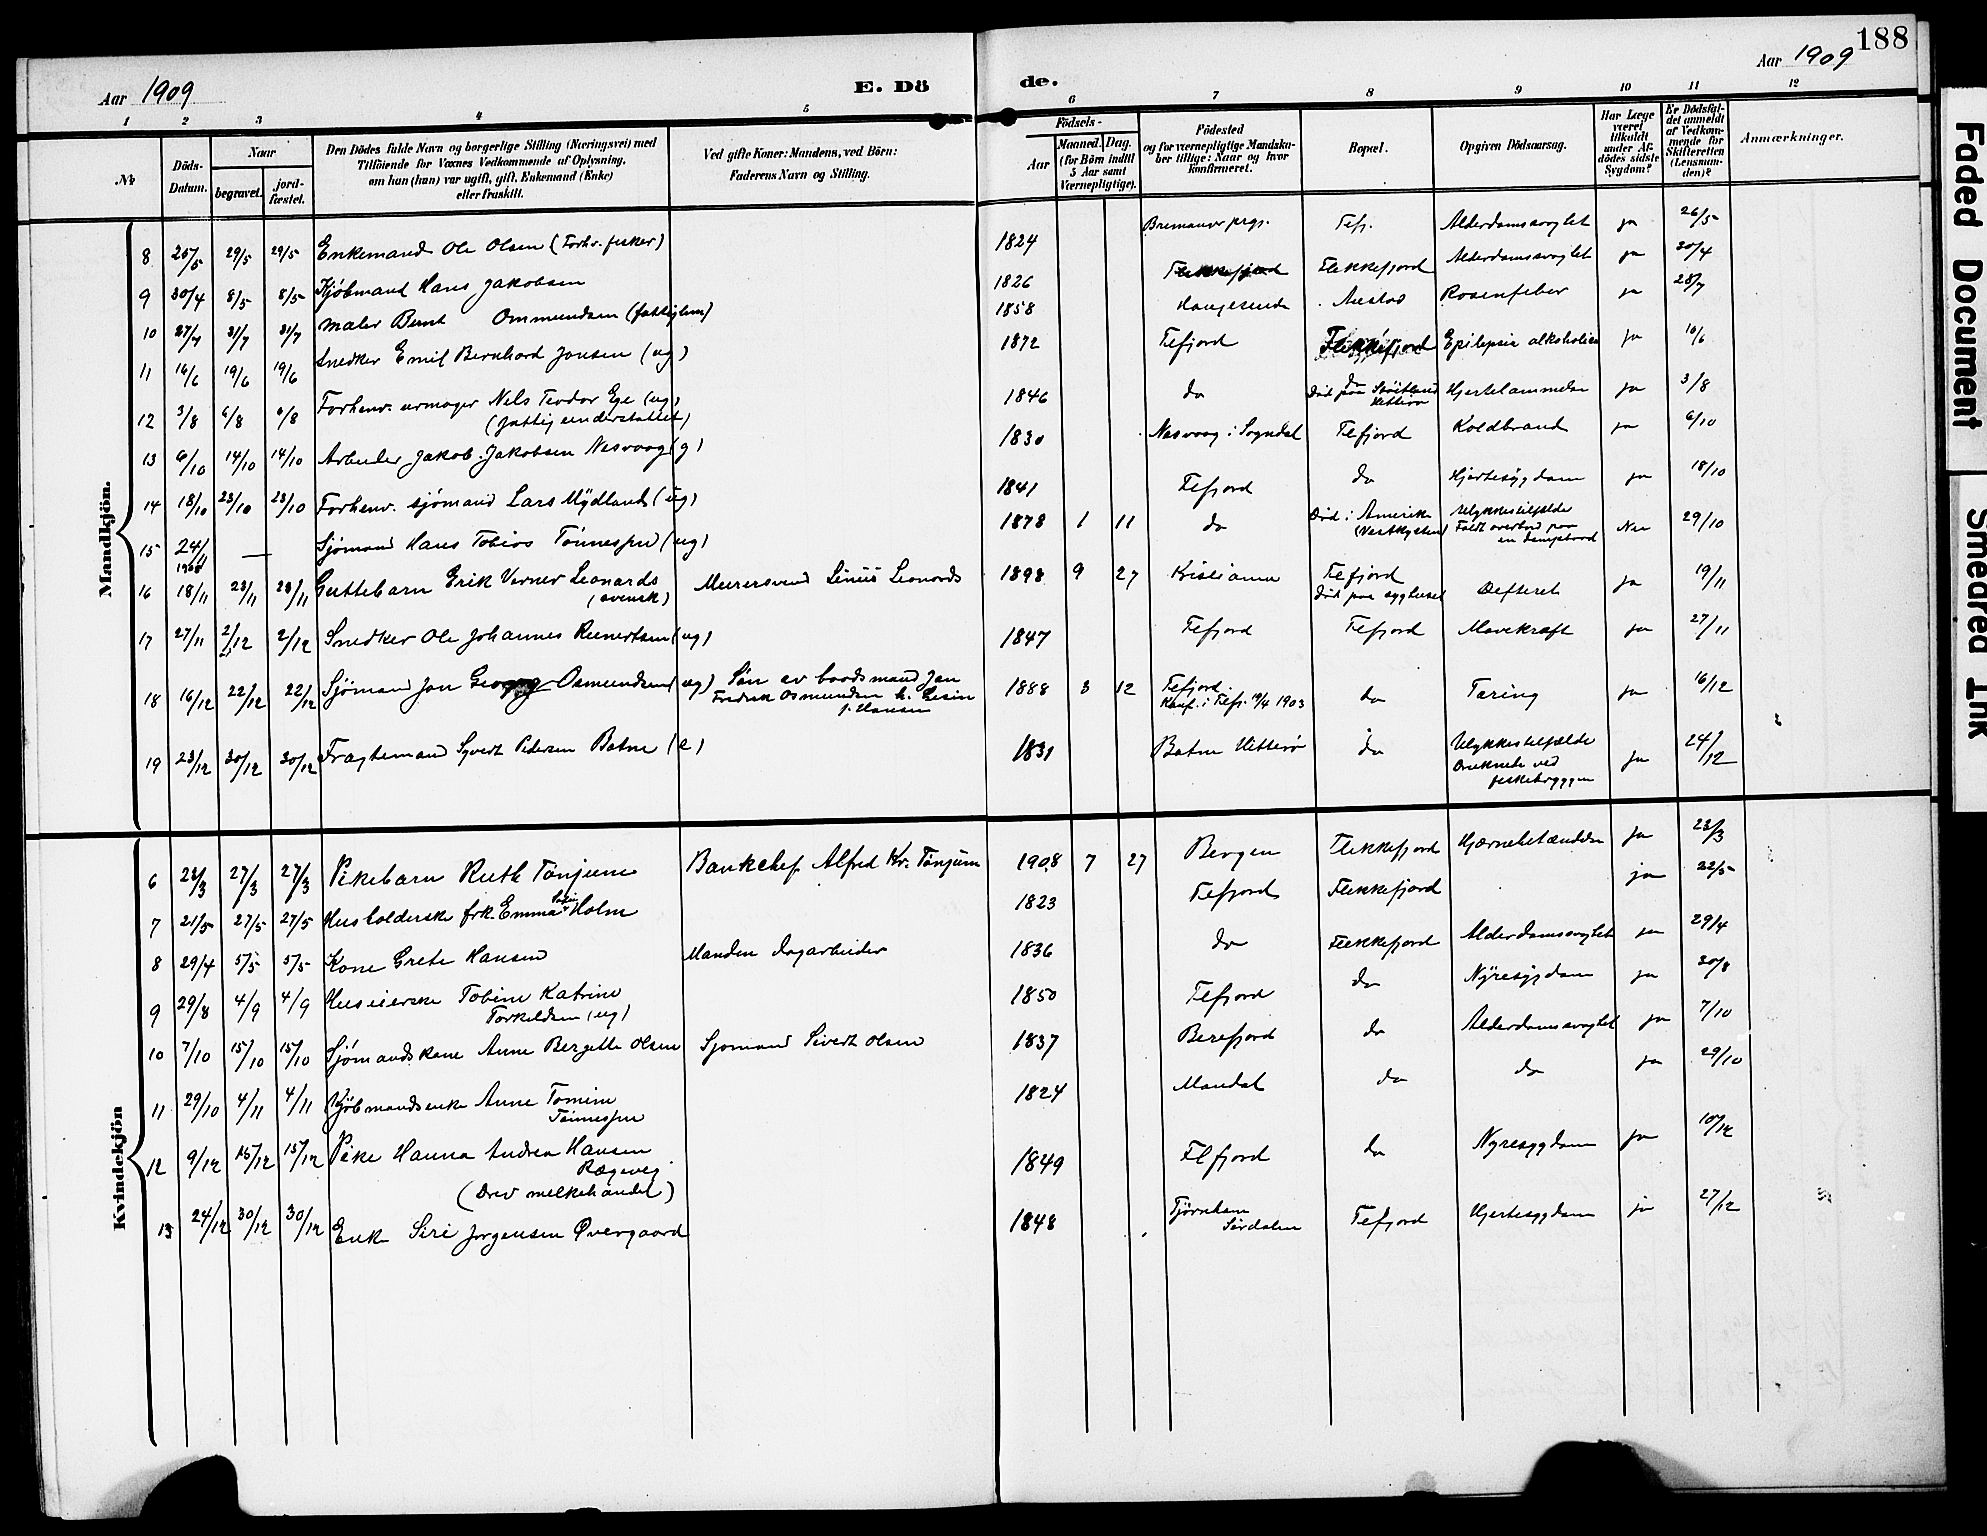 188
Aar 1909
E. Dö
de.
Aar 1909
1 2 3 4 5 6 7 8 9 10 11 12
№
Döds-Datum.
Naar
begravet.
jord-fæstet.
Den Dödes fulde Navn og borgerlige Stilling (Næringsvei) med
Tilföiende for Voxnes Vedkommende af Oplysning,
om han (hun) var ugift, gift, Enkemand (Enke)
eller fraskilt.
Ved gifte Koner: Mandens, ved Börn:
Faderens Navn og Stilling.
Födsels-
Aar
Maaned. Dag.
(for Börn indtil
5 Aar samt
Værnepligtige).
Födested
og for værnepligtige Mandska-
ber tillige: Naar og hvor
konfirmeret.
Bopæl.
Opgiven Dödsaarsag.
Har Læge
været
tilkaldt
under Af-
dödes sidste
Sygdom?
Er Dödsfal-
det anmeldt
af Vedkom-
mende for
Skifteretten
(Lensman-
den)?
Anmærkninger.
Mandkjön.
8 25/5 29/5 29/5 Enkemand Ole Olsen (Forhv. fisker) 1824 Bremanger prgj. Fefj. Alderdomssvaghet ja 26/5
9 30/4 8/5 8/5 Kjöbmand Hans Jakobsen 1826 Flekkefjord Flekkefjord Alderdomssvaghet ja 30/4
10 27/7 31/7 31/7 Maler Bernt Ommundsen (fattiglem) 1858 Haugesund Rosenfeber ja 28/7
11 16/6 19/6 19/6 Snedker Emil Bernhard Jonsen (ug) 1872 Fefjord Flekkefjord Epilepsia alkoholica ja
12 3/8 6/8 6/8 Forhenv. urmager Nels Teodor Ege (ug)
(fattigunderstøttet) 1846 do do
Død paa
Hitterø Hjertelammelse ja 3/8
13 6/10 14/10 14/10 Arbeider Jakob Jakobsen Nesvaag (g) 1830 Nesvaag i Sogndal Fefjord Koldbrand ja 6/10
14 18/10 23/10 23/10 Forhenv. sjømand Lars Mydland (ug) 1841 Fefjord do Hjertesygdom ja 18/10
15 24/11
1908 — Sjømand Hans Tobias Tønnessen (ug) 1878 1 11 do Død i Amerika
(Vestkysten) Ulykkestilfælde
Faldt overbord paa
en dampbaad Nei 29/10
16 18/11 23/11 23/11 Guttebarn Erik Verner Leonards
(svensk) Murersvend Linus Leonards 1898 9 27 Kristiania Fefjord
Død paa sygehuset Defterit ja 19/11
17 27/11 2/12 2/12 Snedker Ole Johannes Reinertsen (ug) 1847 Fefjord Fefjord Mavekræft ja 27/11
18 16/12 22/12 22/12 Sjömand Jan Georg Osmundsen (ug) Søn av baadsmand Jan
Fredrik Osmundsen h. Gesine
f. Hansen 1888 3 12 Fefjord.
Konf. i Flfj. 19/4 1903 do Tæring ja 16/12
19 23/12 30/12 30/12 Fragtemand Syvert Pedersen Botne (e) 1831 Botne Hitterø do Ulykkestilfælde
Druknede ved
fiskebryggen ja 24/12
Kvindekjön
6 23/3 27/3 27/3 Pikebarn Ruth Tönjum Bankchef Alfred Kr. Tönjum 1908 7 27 Bergen Flekkefjord Hjernebetændelse ja 23/3
7 21/5 27/5 27/5 Husholderske frk. Emma Holm 1823 Fefjord Flekkefjord ja 22/5
8 29/4 5/5 5/5 Kone Grete Hansen Manden dagarbeider 1836 do Flekkefjord Alderdomssvaghet ja 29/4
9 29/8 4/9 4/9 Huseierske Tobine Katrine
Torkeldsen (ug) 1850 Fefjord do Nyresygdom ja 30/8
10 7/10 15/10 15/10 Sjømandskone Anne Bergitte Olsen Sjømand Sivert Olsen 1837 Berefjord do Alderdomssvaghet ja 7/10
11 29/10 4/11 4/11 Kjöbmandsenke Anne Tomine
Tønnessen 1824 Mandal do do ja 29/10
12 9/12 15/12 15/12 Pike Hanna Andrea Hansen
Rægevig
(Drev melkehandel) 1849 Flfjord do Nyresygdom ja 10/12
13 24/12 30/12 30/12 Enke Siri Jørgensen Øvergaard 1848 Tjørnham
Sirdalen Fefjord Hjertesygdom ja 27/12
Faded Document
Smeared Ink